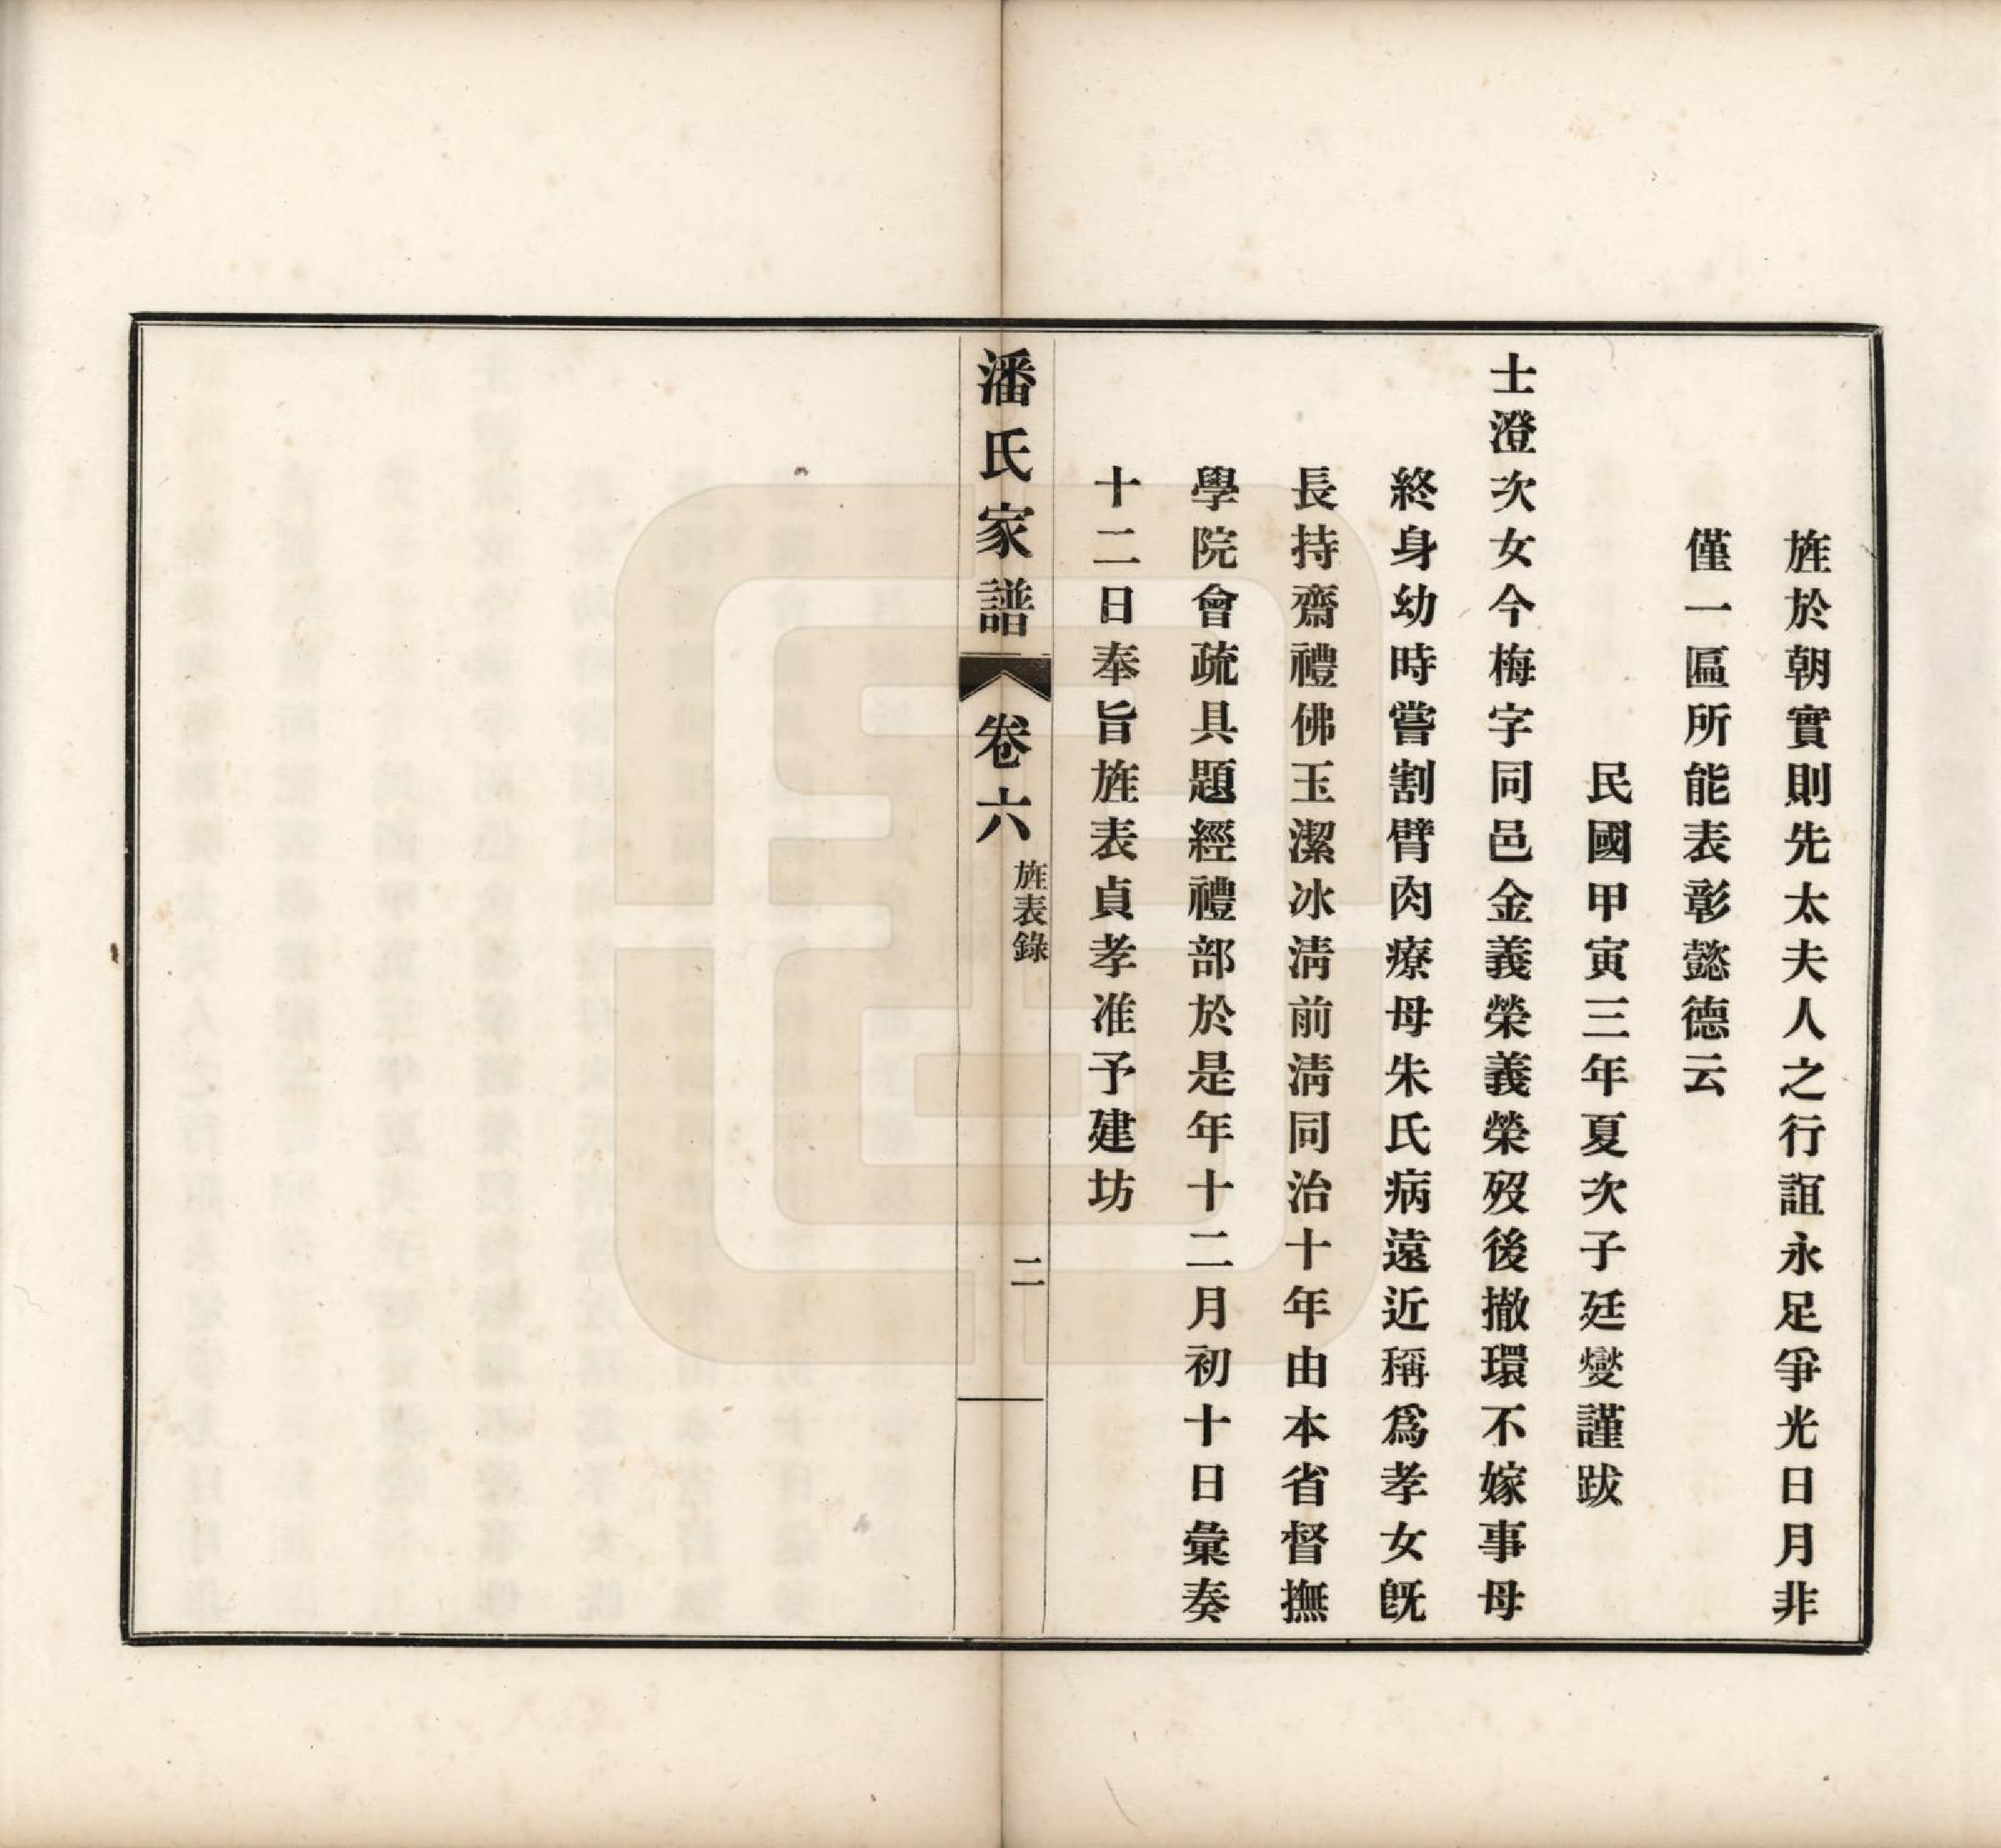 旌於朝實則先太夫人之行誼永足爭光日月非
僅一匾所能表彰懿德云
民國甲寅三年夏次子廷燮謹跋
士澄次女今梅字同邑金義榮義榮歿後撤環不嫁事母
終身幼時嘗割臂肉療母朱氏病遠近稱爲孝女旣
長持齋禮佛玉潔冰淸前淸同治十年由本省督撫
學院會疏具題經禮部於是年十二月初十日彙奏
十二日奉旨旌表貞孝准予建坊
潘氏家譜
卷六
旌表錄
二